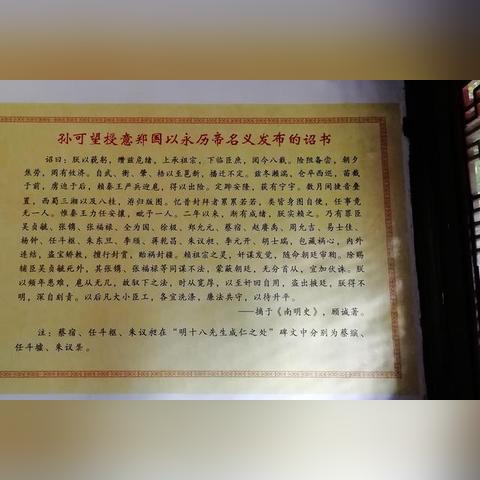 孙可望授意郑国以永历帝名义发布的诏书
诏曰：朕以藐躬，缵兹危绪，上承祖宗，下临臣庶，阅今八载。险阻备尝，朝夕
焦劳，罔有攸济。自武、衡、肇、梧以至邕新，播迁不定。兹冬濑湍，仓卒西巡，苗截
于前，虏迫于后，赖秦王严兵迎扈，得以出险。定跸安隆，获有宁宇。数月间捷音叠
置，西蜀三湘以及八桂，洊归版图。忆昔封拜者累累若若，类皆身图自便，任事竟
无一人。惟秦王力任安攘，毗予一人。二年以来，渐有成绩，朕实赖之。乃有罪臣
吴贞毓、张镌、张福禄、全为国、徐极、郑允元、蔡宿、赵赓禹、周允吉、易士佳、
杨钟、任斗枢、朱东旦、李颀、蒋乾昌、朱议昶、李元开、胡士瑞，包藏祸心，内外
连结，盗宝矫敕，擅行封赏，贻祸封疆。赖祖宗之灵，奸谋发觉，随命朝廷审鞫。除赐
辅臣吴贞毓死外，其张镌、张福禄等同谋不法，蒙蔽朝廷，无分首从，宜加伏诛。朕
以频年患难，扈从无几，故驭下之法，时从宽厚，以至奸回自用，盗出掖廷，朕德不
明，深自刻责。以后凡大小臣工，各宜洗涤，廉法共守，以待升平。
——摘于《南明史》，顾诚著。
注：蔡宿、任斗枢、朱议昶在“明十八先生成仁之处”碑文中分别为蔡縯、
任斗墟、朱议㫤。